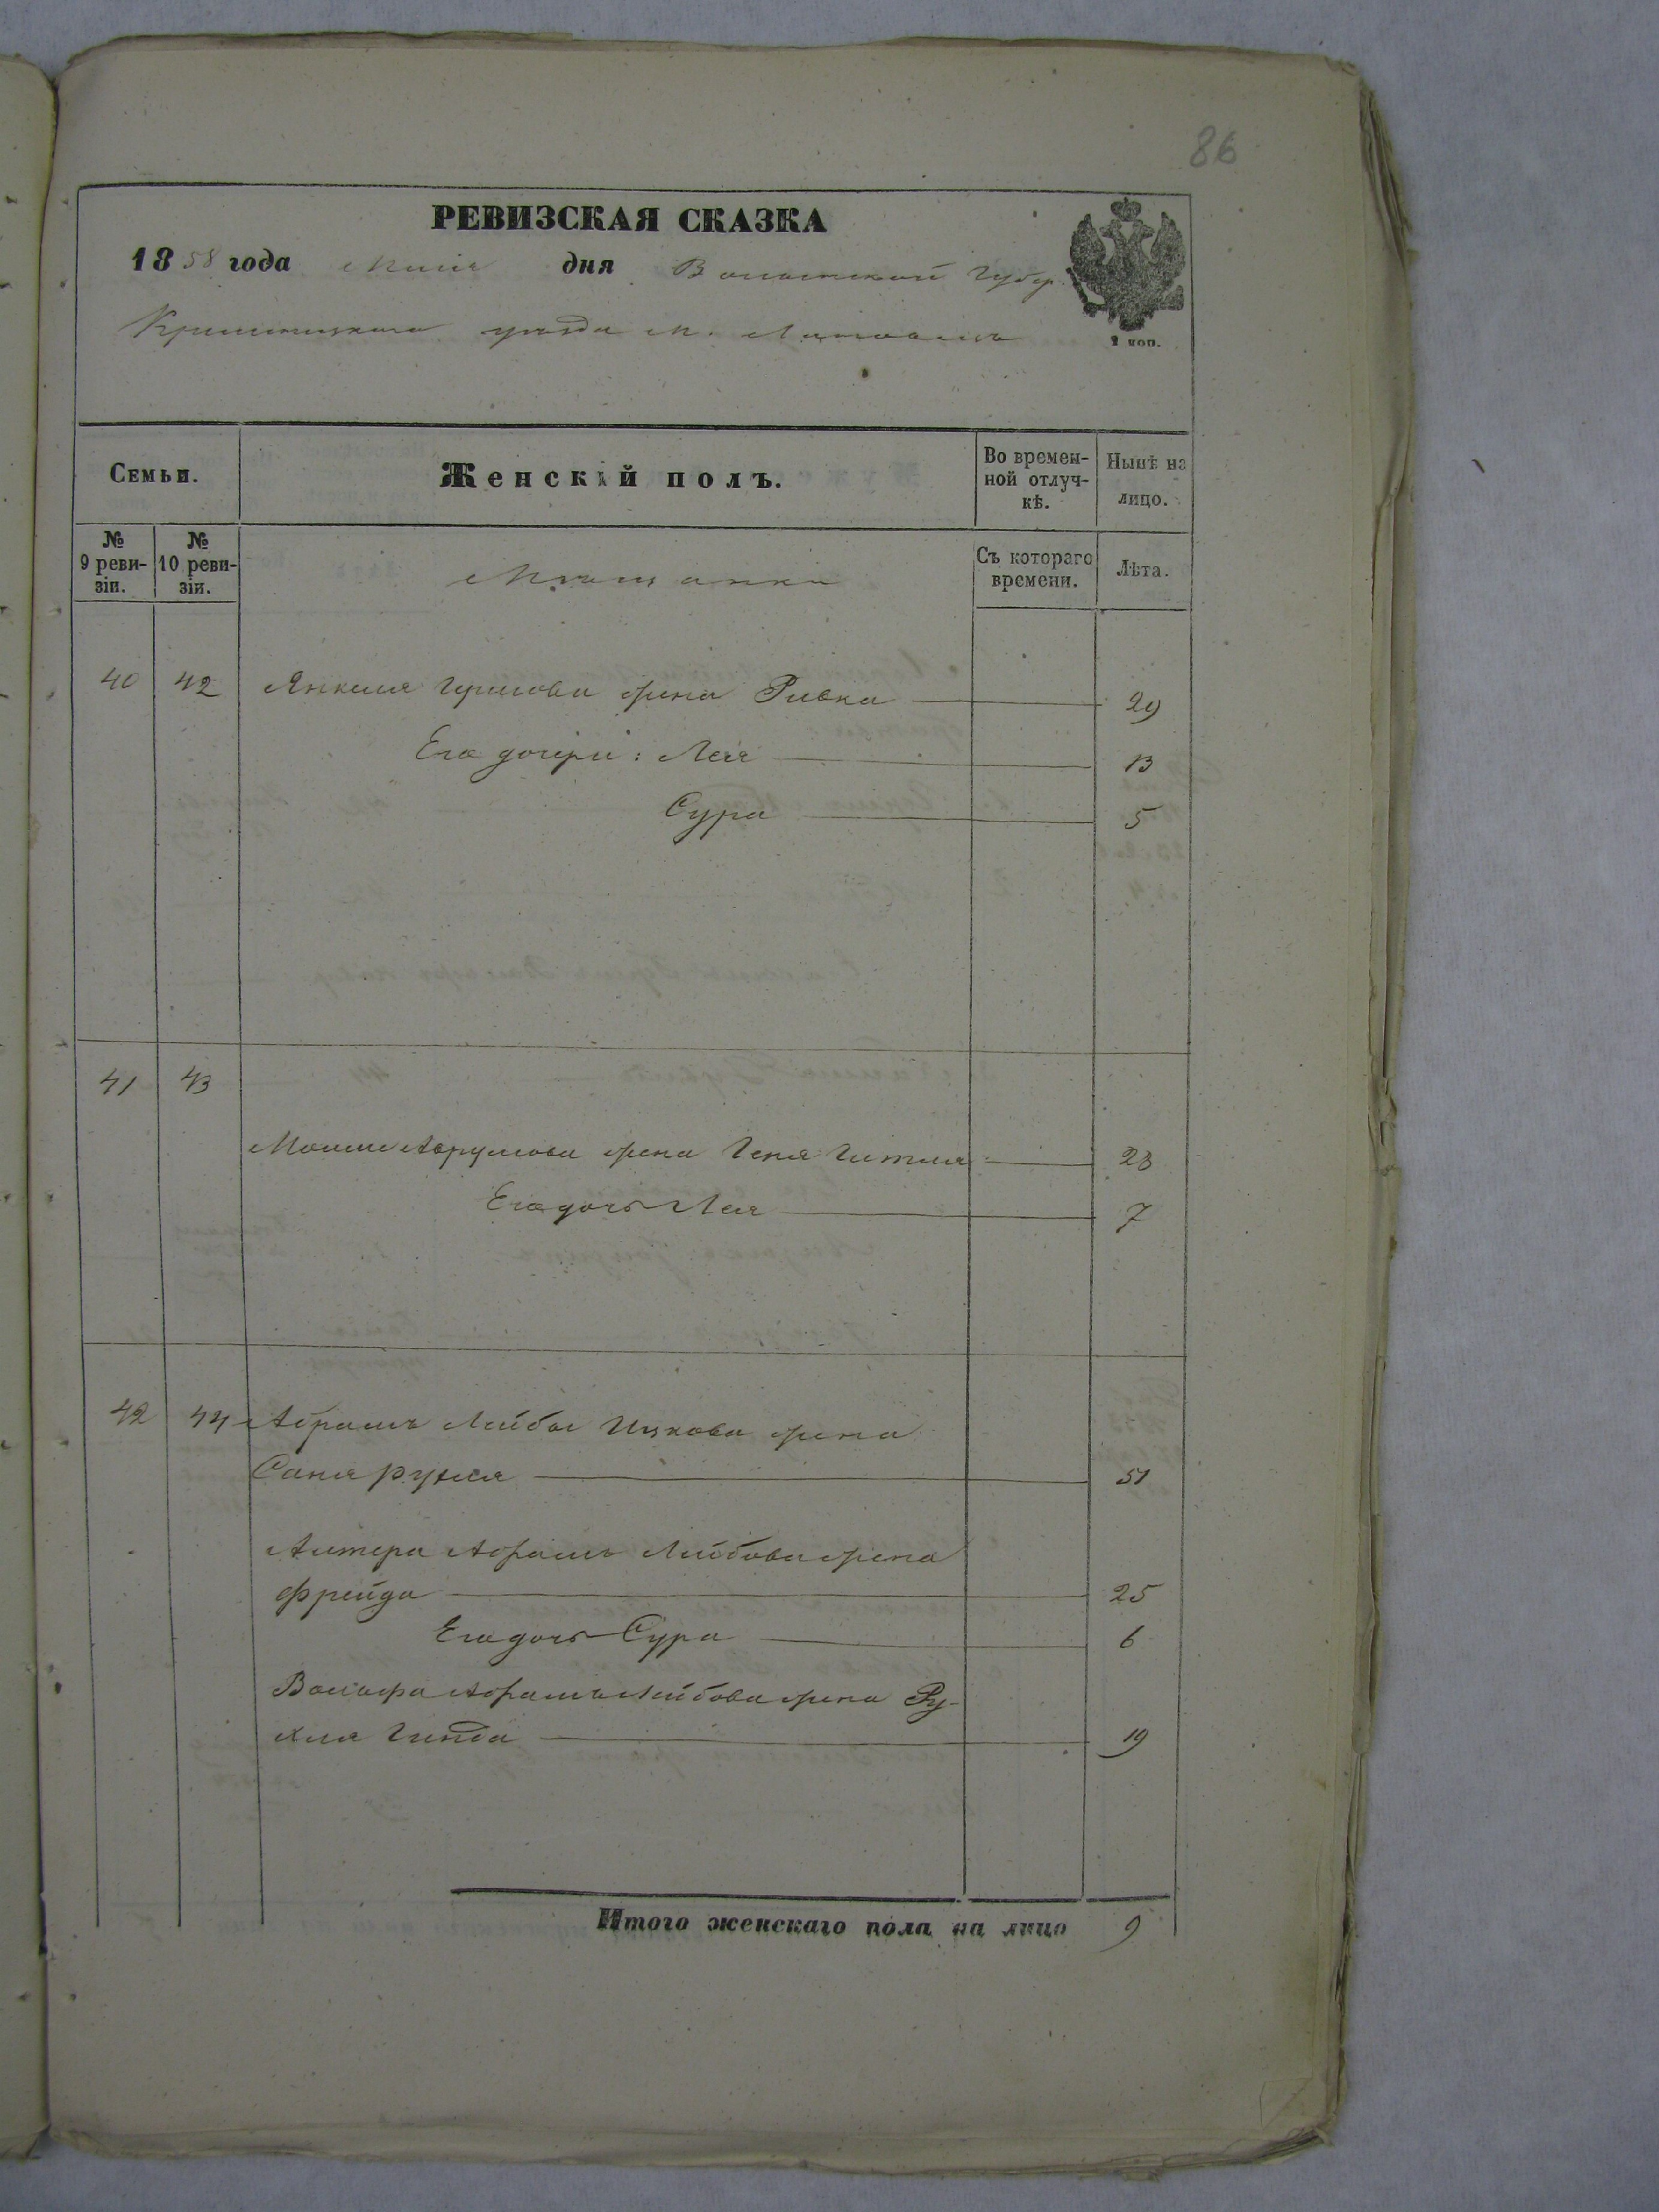 86
РЕВИЗСКАЯ СКАЗКА
1858 года Маія дня Волынской Губер.
Кременецкаго уезда м.
2 коп.
Семьи.
Женскій полъ.
Во времен-
ной отлуч-
кѣ.
Нынѣ на
лицо.
№
9 реви-
зіи.
№
10 реви-
зіи.
Мещанки
Съ котораго
времени.
Лѣта.
40 42 Янкеля Гершова жена Ривка 29
Его дочери: Лея 13
Сура 5
41 43
Мошка Аврумова жена Геня Гитля 23
Его дочь Лея 7
42 44 Абрамъ Лейбы Ицкова жена
Саня Рухля 51
Алтера Абрамъ Лейбова жена
Фрейда 25
Его дочь Сура 6
Вольфа Абрамъ Лейбова жена Ру-
хля Гинда 19
Итого женскаго пола на лицо 9